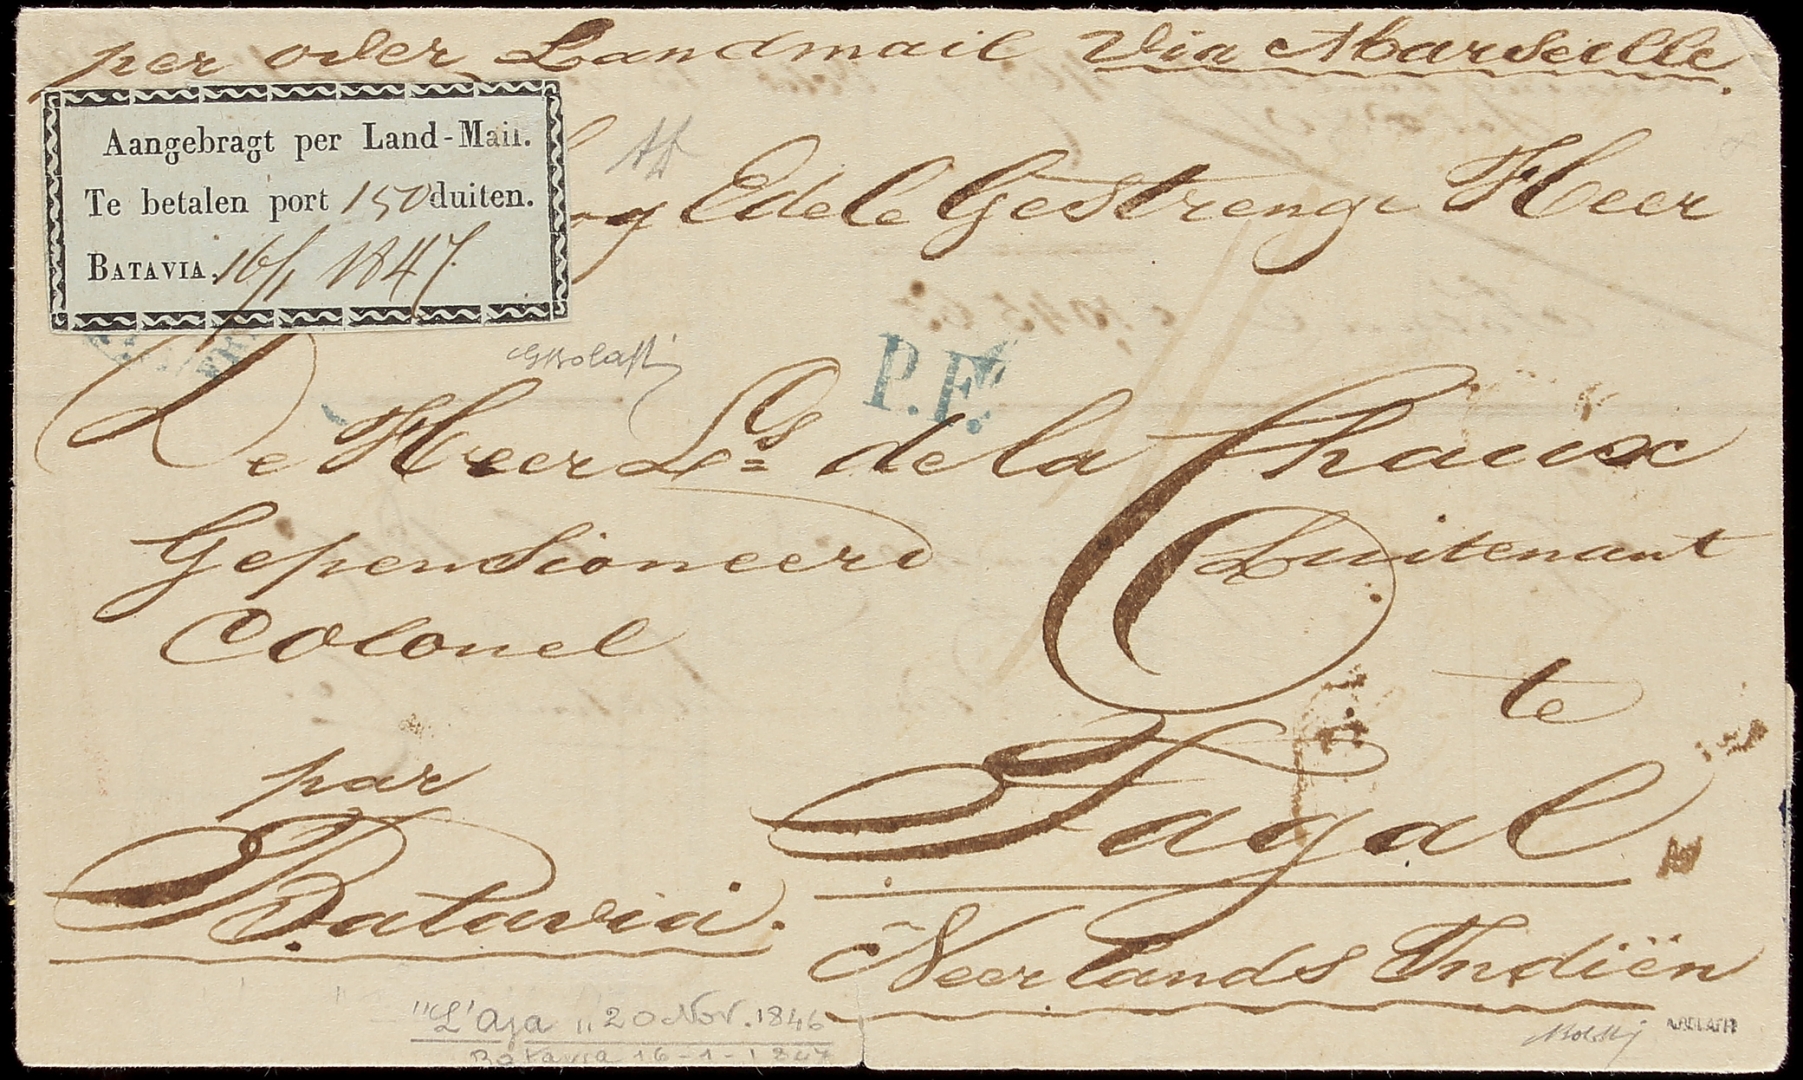 per over Landmail via Marseille.
Aangebragt per Land-Mail.
Te betalen port 150 duiten.
BATAVIA, 16/1 1847.
Edele Gestrenge Heer
P.F.
De Heer de la Chaux
Gepensioneerd Luitenant
Colonel
te
par
Tagal
Batavia.
Neerlands Indiën
"L'Aja" 20 Nov. 1846
Batavia 16-1-1847